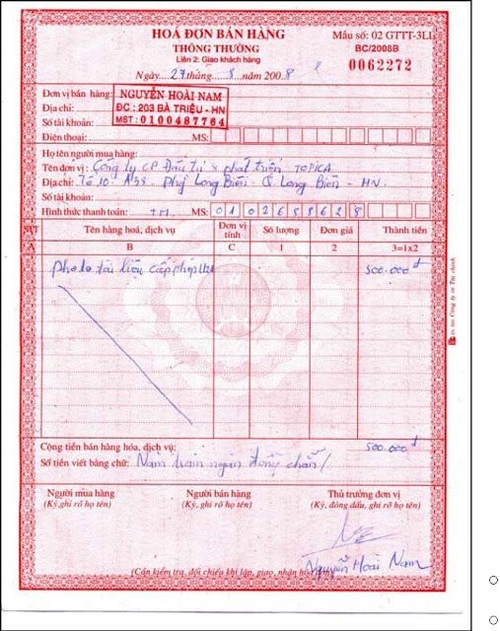 HOÁ ĐƠN BÁN HÀNG
THÔNG THƯỜNG
Liên 2: Giao khách hàng
Mẫu số: 02 GTTT-3LL
BC/2008B
0062272
Ngày....27 tháng...8...năm 2008
Đơn vị bán hàng: NGUYỄN HOÀI NAM
Địa chỉ: ĐC : 203 BÀ TRIỆU - HN
Số tài khoản: MST : 0100487764
Điện thoại: MS:
Họ tên người mua hàng:
Tên đơn vị: Công ty CP Đầu tư & phát triển TOPICA
Địa chỉ: Tổ 10 - Long Biên - Q Long Biên - HN.
Số tài khoản:
Hình thức thanh toán: TM MS: 01 02658628
STT Tên hàng hoá, dịch vụ Đơn vị tính Số lượng Đơn giá Thành tiền
A B C 1 2 3=1x2
photo tài liệu cấp phép 500.000đ
Cộng tiền bán hàng hóa, dịch vụ: 500.000đ
Số tiền viết bằng chữ: Năm trăm ngàn đồng chẵn /
Người mua hàng Người bán hàng Thủ trưởng đơn vị
(Ký, ghi rõ họ tên) (Ký, ghi rõ họ tên) (Ký, đóng dấu, ghi rõ họ tên)
Nguyễn Hoài Nam
(Cần kiểm tra, đối chiếu khi lập, giao, nhận